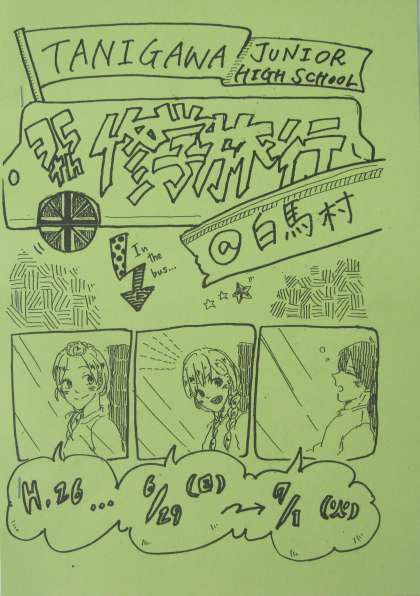 TANIGAWA JUNIOR
HIGH SCHOOL
修学旅行
@白馬村
In
the
bus...
H.26... 6/29(日) → 7/1(火)